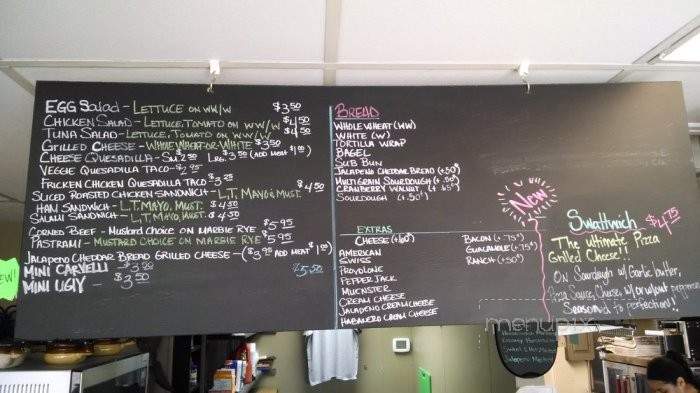 EGG Salad - LETTUCE ON WW/W $3.50
CHICKEN SALAD - LETTUCE, TOMATO ON WW/W $4.50
TUNA SALAD - LETTUCE, TOMATO ON WW/W $4.50
GRILLED CHEESE - WHOLE WHEAT OR WHITE $3.50
CHEESE QUESADILLA - SM. 2.50 LRG. $3.50 (ADD MEAT $1.00)
VEGGIE QUESADILLA TACO - $2.95
FRICKEN CHICKEN QUESADILLA TACO $3.25
SLICED ROASTED CHICKEN SANDWICH - L,T, MAYO & MUST. $4.50
HAM SANDWICH - L,T, MAYO, MUST. $4.50
SALAMI SANDWICH - L,T, MAYO, MUST. $4.50
CORNED BEEF - MUSTARD CHOICE ON MARBLE RYE $5.95
PASTRAMI - MUSTARD CHOICE ON MARBLE RYE $5.95
JALAPENO CHEDDAR BREAD GRILLED CHEESE - ($3.95 ADD MEAT $1.00)
MINI CARVELLI - $3.20 $5.50
MINI UGLY - $3.50
BREAD
WHOLE WHEAT (WW)
WHITE (W)
TORTILLA WRAP
BAGEL
SUB BUN
JALAPENO CHEDDAR BREAD (+.50¢)
MULTIGRAIN SOURDOUGH (+.50¢)
CRANBERRY WALNUT (+.65¢)
SOURDOUGH (+.50¢)
EXTRAS
CHEESE (+.60¢)
AMERICAN
SWISS
PROVOLONE
PEPPER JACK
MUENSTER
CREAM CHEESE
JALAPENO CREAM CHEESE
HABANERO CREAM CHEESE
BACON (+.75¢)
GUACAMOLE (+.75¢)
RANCH (+.50¢)
New
Swattwich $4.75
The ultimate Pizza
Grilled Cheese!!
ON Sourdough w/ Garlic butter,
Pizza Sauce, Cheese, w/ or w/out pepperoni
Seasoned to perfection!!
menupix
EW!